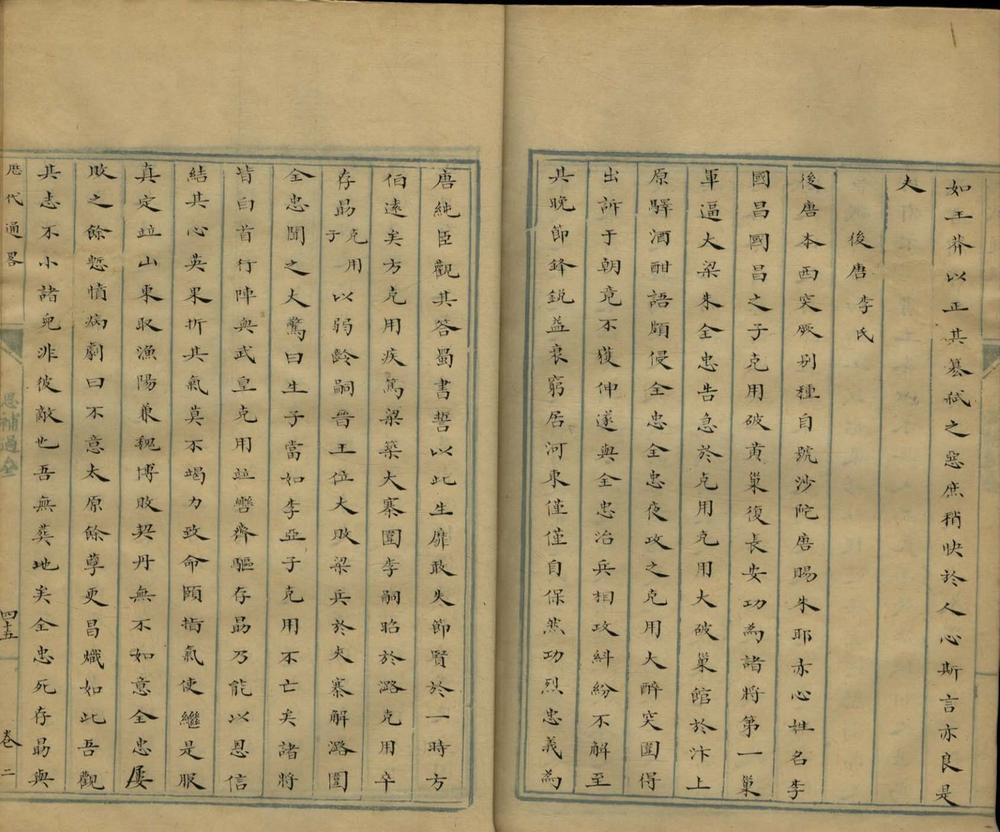 如王莽以正其簒弑之惡庶稍快於人心斯言亦良是
夫
後唐李氏
後唐本西突厥别種自號沙陀唐賜朱耶赤心姓名李
國昌國昌之子克用破黄巢復長安功為諸將第一巢
軍逼大梁朱全忠告急於克用克用大破巢館於汴上
原驛酒酣語頗侵全忠全忠夜攻之克用大醉突圍得
出訴于朝竟不獲伸遂與全忠治兵相攻糾紛不解至
其晩節鋒鋭益衰窮居河東僅僅自保然功烈忠義為
唐純臣觀其答蜀書誓以此生靡敢失節賢於一時方
伯逺矣方克用疾篤梁築大寨圍李嗣昭於潞克用卒
存勗克用子以弱齡嗣晉王位大敗梁兵於夾寨解潞圍
全忠聞之大驚曰生子當如李亞子克用不亡矣諸將
皆白首行陣與武皇克用並轡齊驅存勗乃能以恩信
結其心英果折其氣莫不竭力致命頤指氣使繼是服
真定並山東取漁陽兼魏博敗契丹無不如意全忠屡
敗之餘慙憤病劇曰不意太原餘孽更昌熾如此吾觀
其志不小諸兒非彼敵也吾無葬地矣全忠死存勗與
歴代通畧
四十五
卷二